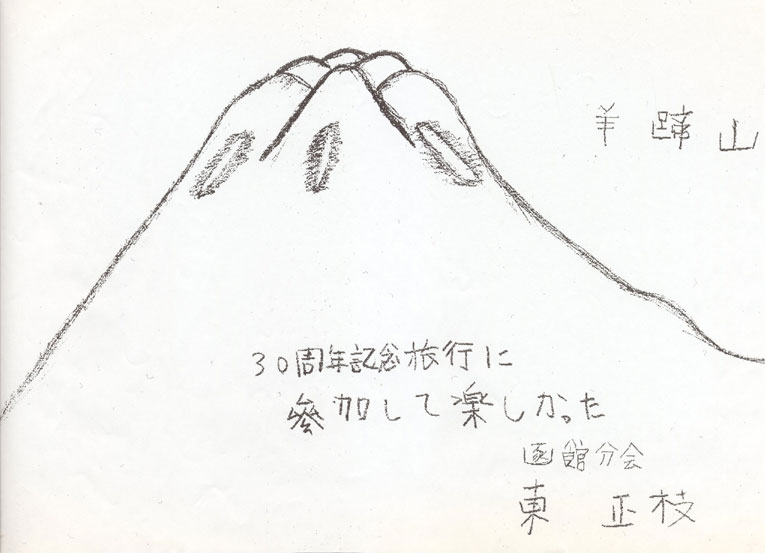 羊蹄山
30周年記念旅行に
参加して楽しかった
函館分会
東 正枝